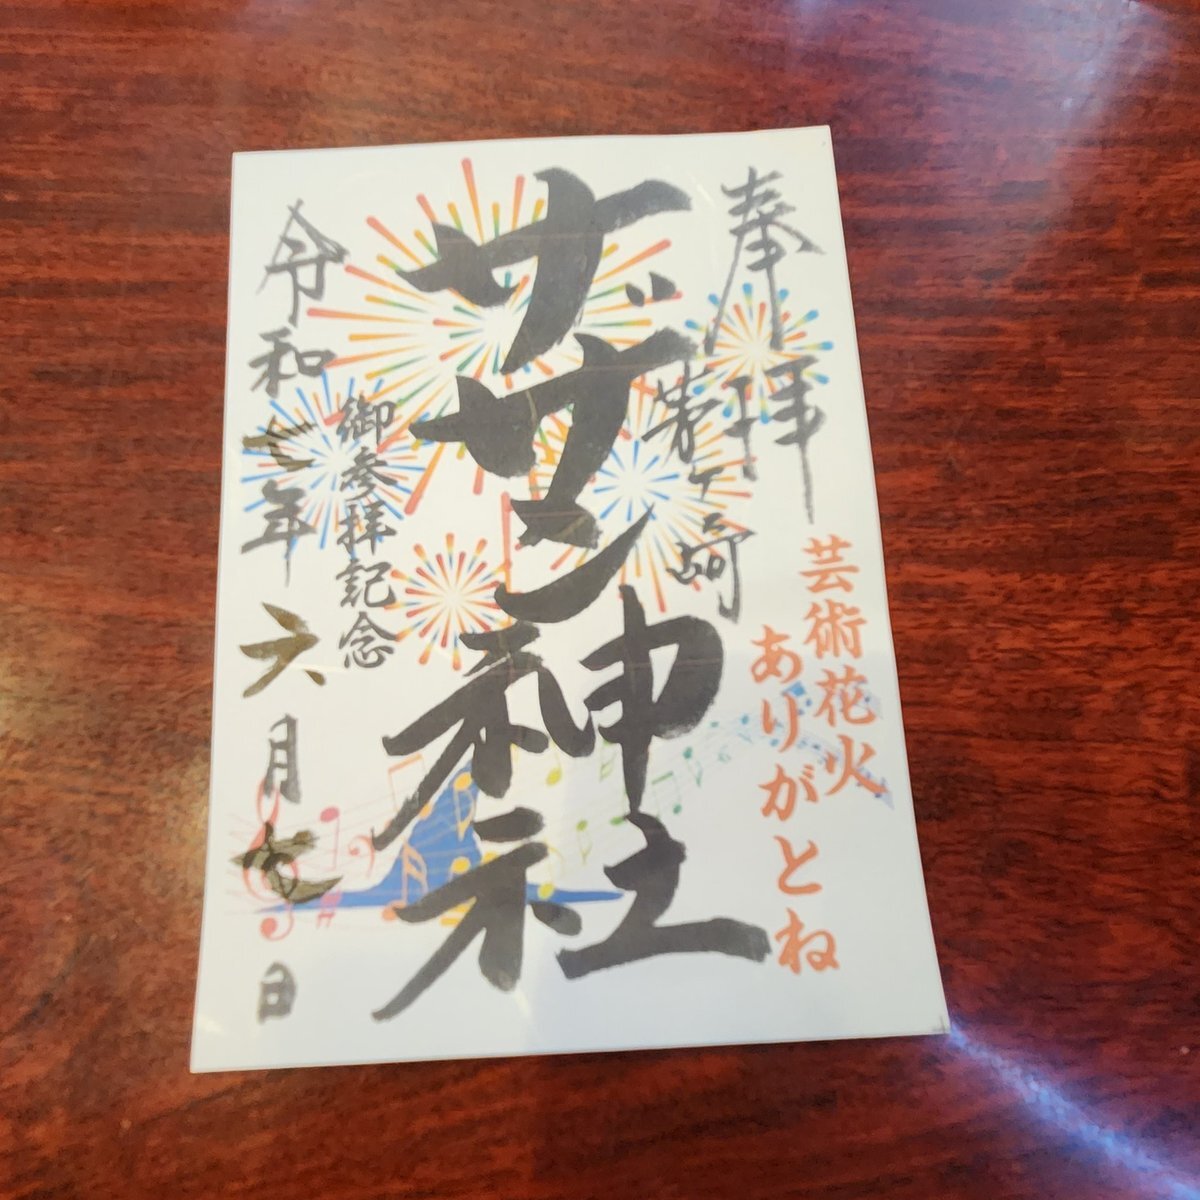 奉拝
芸術花火
ありがとね
茅ヶ崎
サザン神社
御参拝記念
令和七年六月七日